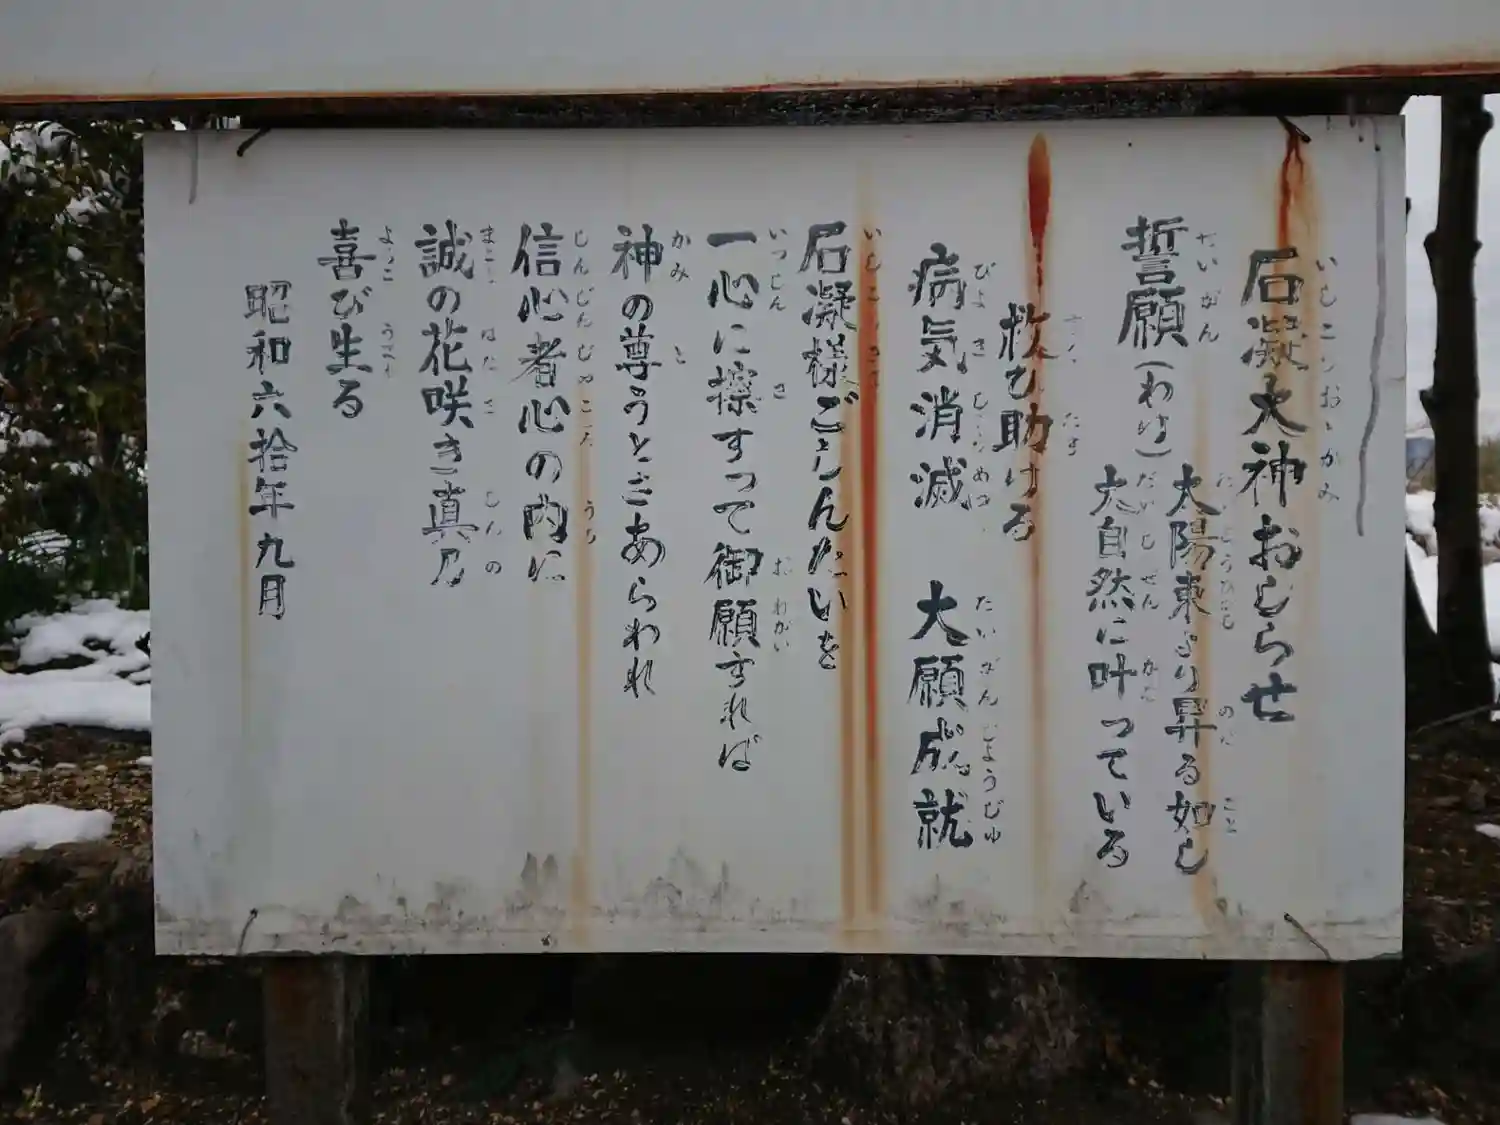 石凝大神おしらせ
誓願(わけ)
太陽東より昇る如し
大自然に叶っている
救ひ助ける
病気消滅 大願成就
石凝様ごしんたいを
一心に擦すって御願すれば
神の尊うとごあらわれ
信心者心の内に
誠の花咲き真乃
喜び生る
昭和六拾年九月